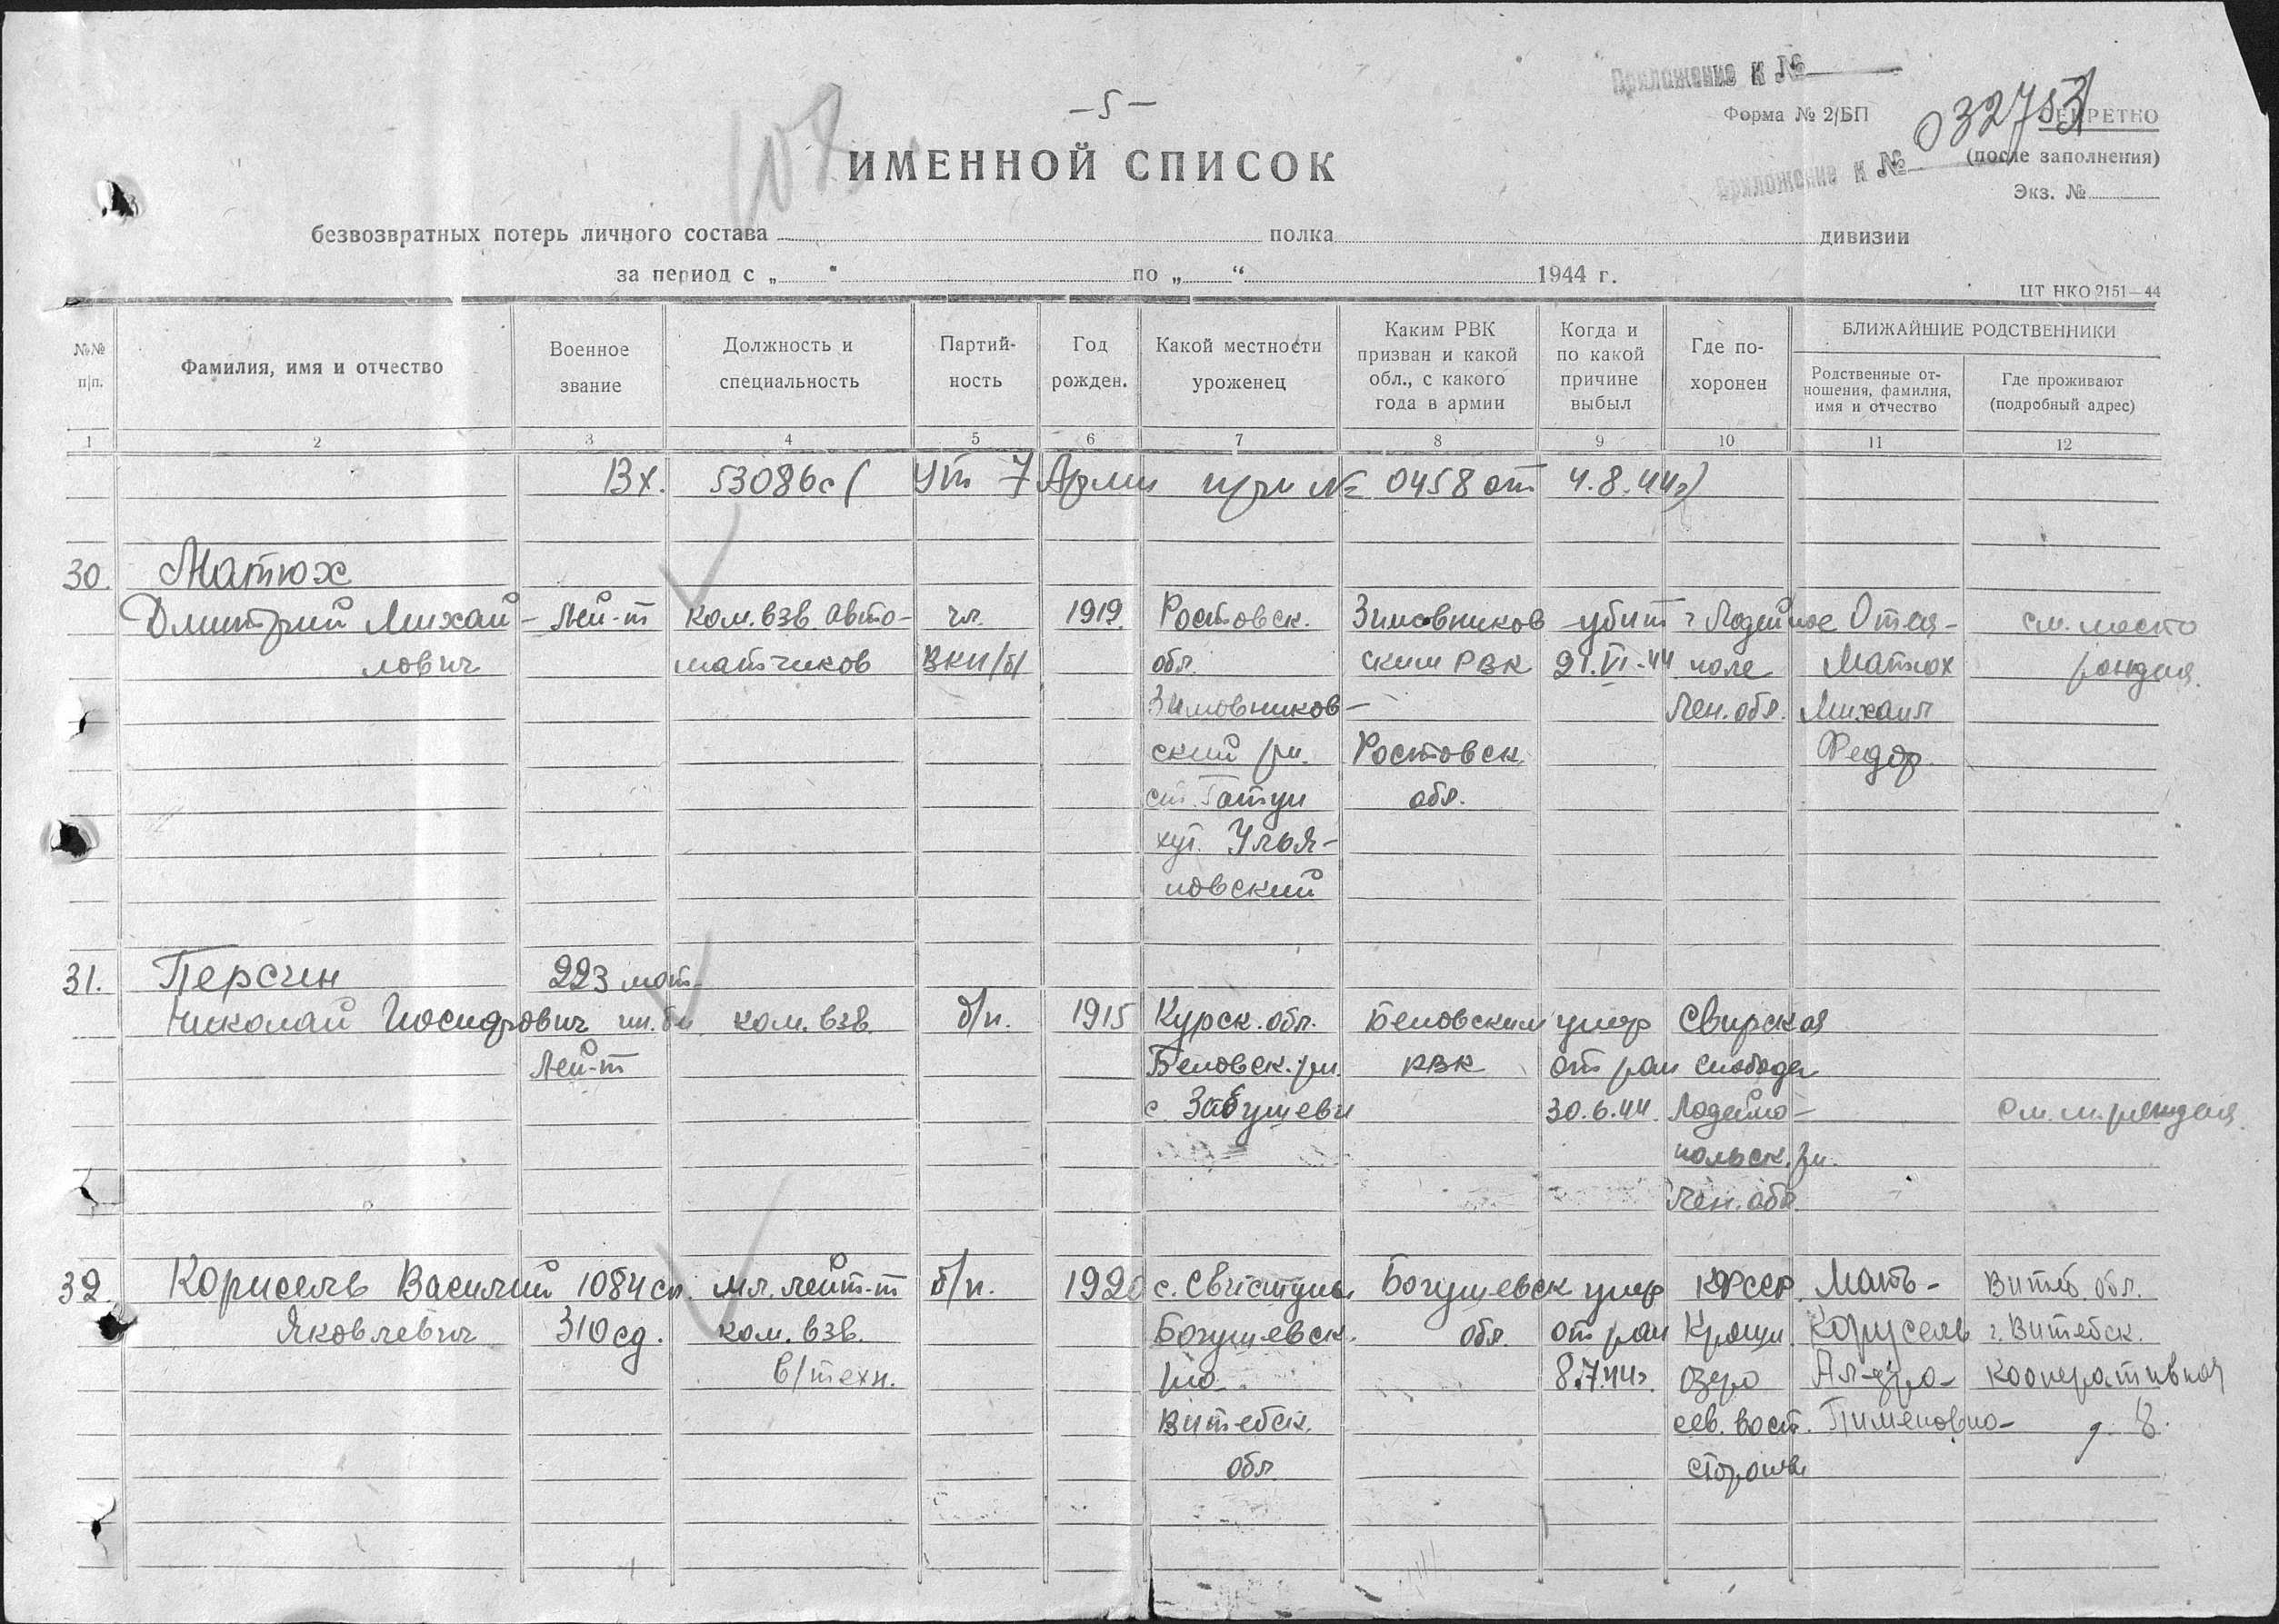 Приложение к №
— 5 —
Форма № 2/БП
032753
СЕКРЕТНО
108
ИМЕННОЙ СПИСОК
(после заполнения)
Приложение к №
Экз. №
безвозвратных потерь личного состава полка дивизии
за период с „ " по „ “ 1944 г.
ЦТ НКО 2151—44
№№ п/п.
Фамилия, имя и отчество
Военное звание
Должность и специальность
Партий- ность
Год рожден.
Какой местности уроженец
Каким РВК призван и какой обл., с какого года в армии
Когда и по какой причине выбыл
Где по- хоронен
БЛИЖАЙШИЕ РОДСТВЕННИКИ
Родственные от- ношения, фамилия, имя и отчество
Где проживают (подробный адрес)
1 2 3 4 5 6 7 8 9 10 11 12
Вх. 53086с ( 7 Арми при № 0458 от 4.8.44г)
30. Матюх
Дмитрий Михай- Лей-т ком. взв. авто- чл. 1919. Ростовск. Зимовников убит г Лодейное Отец- см. место
лович матчиков ВКП/б/ обл. ским РВК 21.VI-44 поле Матюх рожден.
Зимовников- Лен. обл. Михаил
ский рн. Ростовск. Федор.
ст. обл.
хут. Улья-
новский
31. Персин 223 мот-
Николай Иосифович ком. взв. б/п. 1915 Курск. обл. Беловским умер Свирская
Лей-т Беловск. рн. РВК от ран слобода
с. 30.6.44. Лодейно- см. м. рожден.
польск. рн.
Лен. обл.
32. Корисель Василий 1084 сп. мл. лейт-т б/п. 1920 с. Богушевск умер КФССР. Мать- Витеб. обл.
Яковлевич 310 сд. ком. взв. Богушевск. обл. от ран Корусель г. Витебск.
в/техн. 8.7.44г. озеро Кооперативная
Витебск. сев. вост. Пименовна- д. 8.
обл. стороне